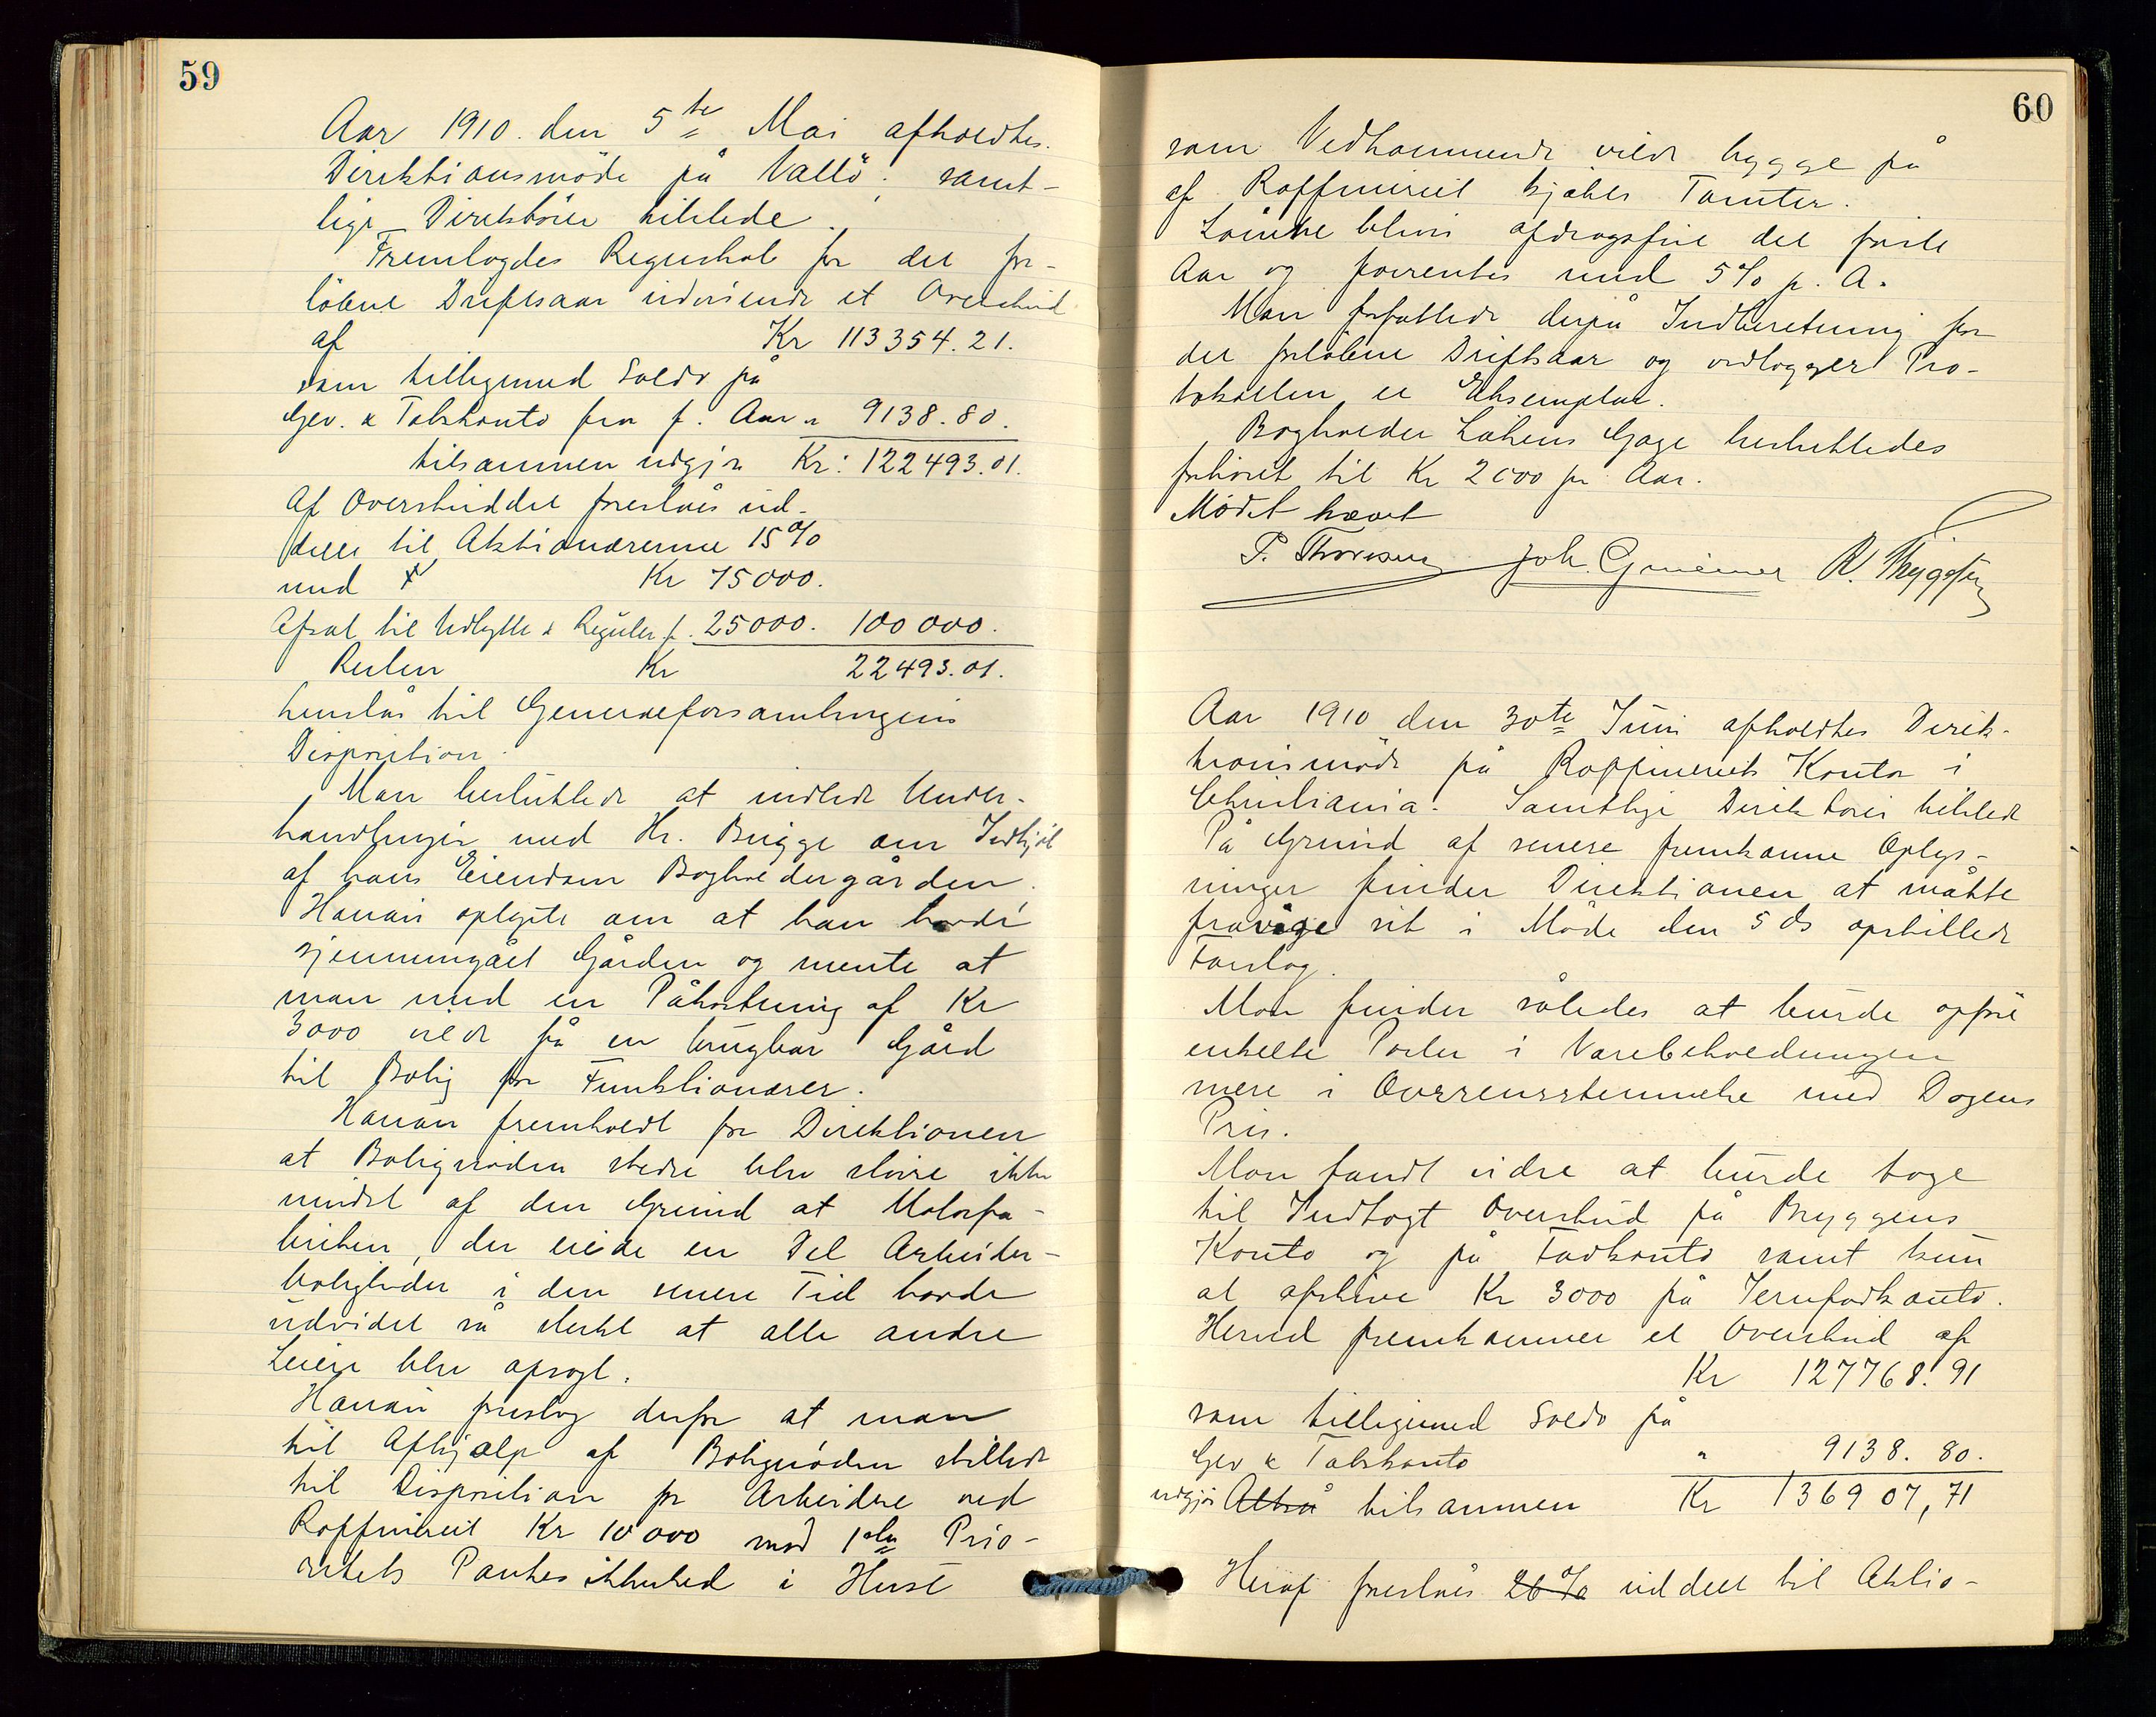 59
Aar 1910. den 5te Mai afholdtes
Direktionsmöde på Vallö. samt-
lige Direktörer tilstede.
Fremlagdes Regnskab for det for-
löbne Driftsaar udvisende et Overskud
af Kr 113354.21.
som tilligemed Saldo på
Gev. & Tabskonto fra f. Aar " 9138.80.
tilsammen udgjör Kr: 122493.01.
Af Overskuddet foreslåes ud-
delt til Aktionærerne 15%
med Kr 75000.
Afsat til Udbytte & Reguler.f. 25000. 100000.
Resten Kr 22493.01.
henstår til Generalforsamlingens
Disposition.
Man besluttede at indlede Under-
handlinger med Hr. Brigge om Indkjöb
af hans Eiendom Bogholdergården.
Hanan oplyste om at han havde
gjennemgået Gården og mente at
man med en Påkostning af Kr
3000 vilde få en brugbar Gård
til Bolig for Funktionærer.
Hanan fremholdt for Direktionen
at Bolignöden stedse blev större ikke
mindst af den Grund at Motorfa-
briken, der eiede en Del Arbeider-
boligheder i den senere Tid havde
udvidet så sterkt at alle andre
Leiere blev opsagt.
Hanan foreslog derfor at man
til Afhjælp af Bolignöden stillede
til Disposition for Arbeidere ved
Raffineriet Kr 10000 mod 1ste Prio-
ritets Pantesikkerhed i Huse
60
som Vedkommende vilde bygge på
af Raffineriet kjöbte Tomter.
Lånene blive afdragsfrie det förste
Aar og forrentes med 5% p. A.
Man forfattede derpå Indberetning for
det forlöbne Driftsaar og vedlægger Pro-
tokollen et Eksemplar.
Bogholder Gage besluttedes
forhöiet til Kr 2000 pr. Aar.
Mödet hævet
P. Thoresen Joh. R. Thygesen
Aar 1910 den 30te Juni afholdtes Direk-
tionsmöde på Raffineriets Kontor i
Christiania. Samtlige Direktörer tilstede
På Grund af senere fremkomne Oplys-
ninger finder Direktionen at måtte
fravige sit i Möde den 5 ds opstillede
Forslag.
Man finder således at burde opföre
enkelte Poster i Varebeholdningen
mere i Overrensstemmelse med Dagens
Pris.
Man fandt videre at burde tage
til Indtægt Overskud på Bryggens
Konto og på Fadkonto samt kun
at afskrive Kr 3000 på Jernfadkonto.
Herved fremkommer et Overskud af
Kr 127768.91
som tilligemed Saldo på
Gev & Tabskonto " 9138.80.
udgjör Altså tilsammen Kr 136907,71
Heraf foreslåes 26% uddelt til Aktio-